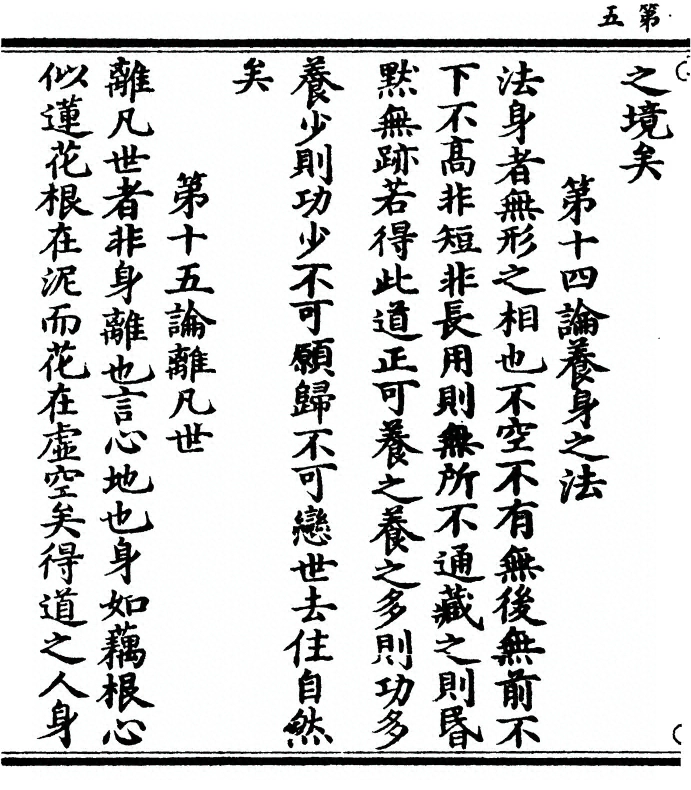 第五
之境矣
第十四論養身之法
法身者無形之相也不空不有無後無前不
下不高非短非長用則無所不通藏之則昏
黙無跡若得此道正可養之養之多則功多
養少則功少不可願歸不可戀世去住自然
矣
第十五論離凡世
離凡世者非身離也言心地也身如藕根心
似蓮花根在泥而花在虛空矣得道之人身